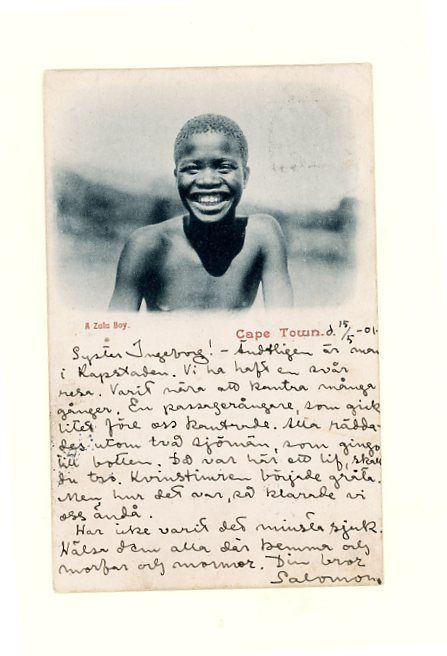 A Zulu Boy.
Cape Town. d. 15/5 -01.
Syster Ingeborg! - Ändtligen är man
i Kapstaden. Vi ha haft en svår
resa. Varit nära att kantra många
gånger. En passagerångare, som gick
litet före oss kantrade. Alla rädda-
des utom två sjömän, som gingo
till botten. Då var här ett lif, skall
du tro. Kvinstimren började gråta.
Men hur det var, så klarade vi
oss ändå.
Har icke varit det minsta sjuk.
Hälsa dem alla där hemma och
morfar och mormor. Din bror
Salomon